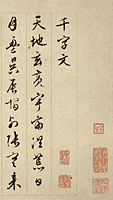 千字文
天地玄黃宇宙洪荒日
月盈昃辰宿列張寒來